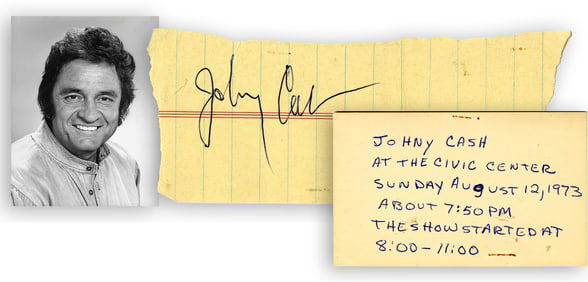 Johny Cash
JOHNY CASH
AT THE CIVIC CENTER
SUNDAY AUGUST 12, 1973
ABOUT 7:50 PM
THE SHOW STARTED AT
8:00 - 11:00